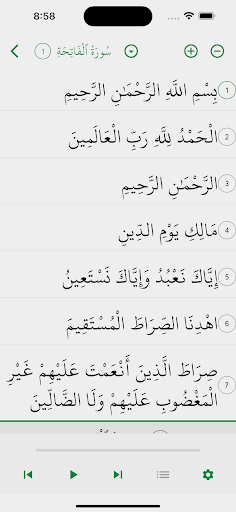 8:58
سُورَةُ ٱلْفَاتِحَةِ 1
بِسْمِ اللَّهِ الرَّحْمَٰنِ الرَّحِيمِ 1
الْحَمْدُ لِلَّهِ رَبِّ الْعَالَمِينَ 2
الرَّحْمَٰنِ الرَّحِيمِ 3
مَالِكِ يَوْمِ الدِّينِ 4
إِيَّاكَ نَعْبُدُ وَإِيَّاكَ نَسْتَعِينُ 5
اهْدِنَا الصِّرَاطَ الْمُسْتَقِيمَ 6
صِرَاطَ الَّذِينَ أَنْعَمْتَ عَلَيْهِمْ غَيْرِ
الْمَغْضُوبِ عَلَيْهِمْ وَلَا الضَّالِّينَ 7